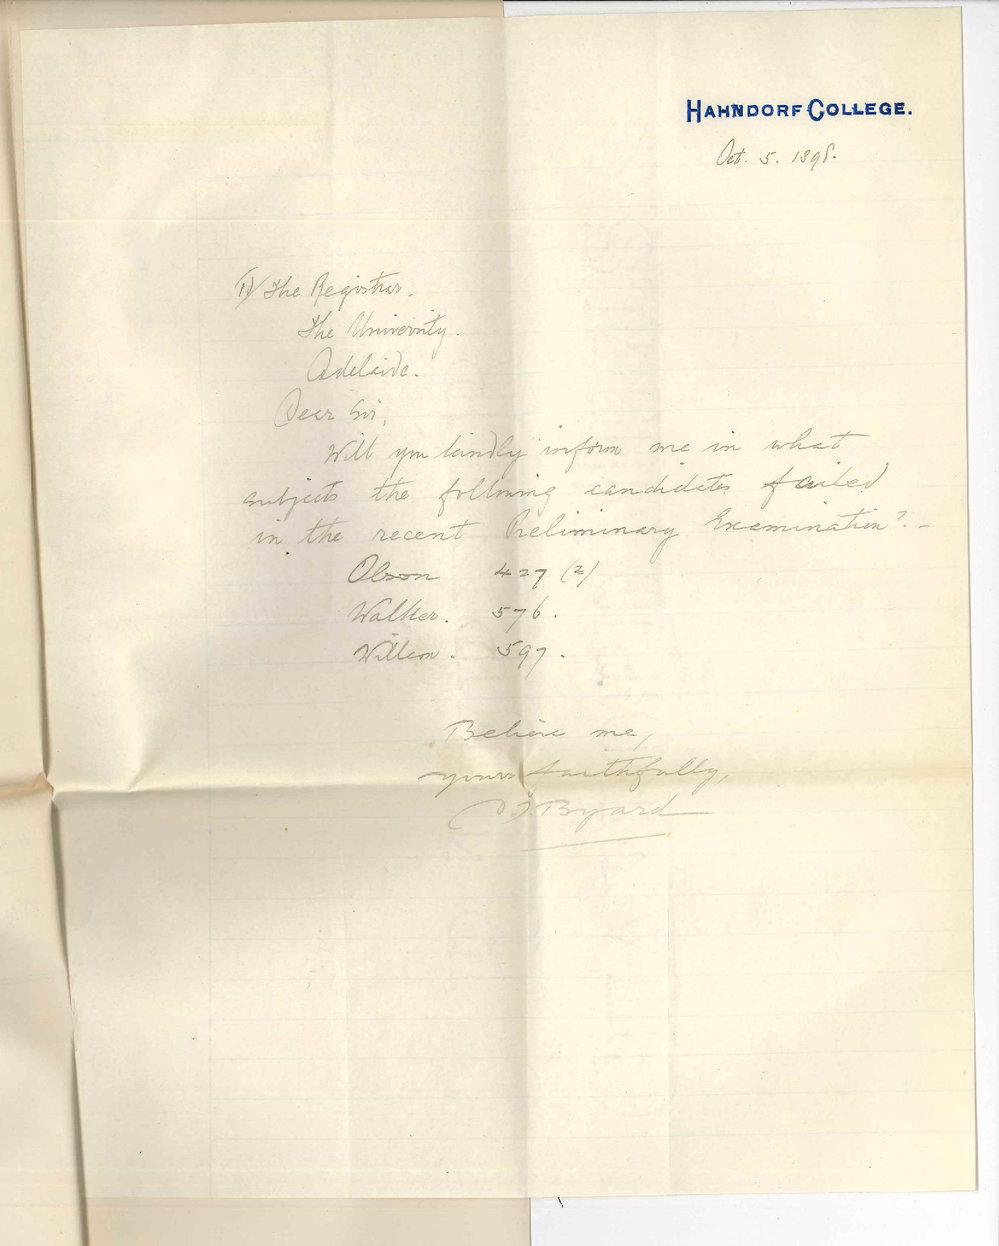 HAHNDORF COLLEGE.
Oct. 5. 1898.
To/ The Registrar.
The University.
Adelaide.
Dear Sir,
Will you kindly inform me in what
subjects the following candidates failed
in the recent Preliminary Examination? -
Olsson 427 (2)
Walker. 576.
Willson. 597.
Believe me,
yours faithfully,
D J Byard